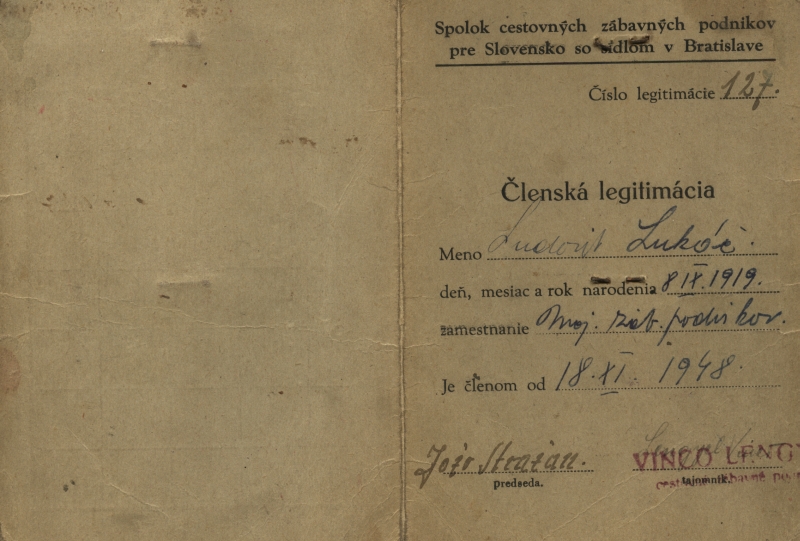 Spolok cestovných zábavných podnikov
pre Slovensko so sídlom v Bratislave
Číslo legitimácie 127.
Členská legitimácia
Meno Ľudovít Lukáč.
deň, mesiac a rok narodenia 8 IX. 1919.
zamestnanie Maj. záb. podnikov.
Je členom od 18. XI. 1948.
Jožo Stražan.
predseda.
VINCO LENG
tajomník.